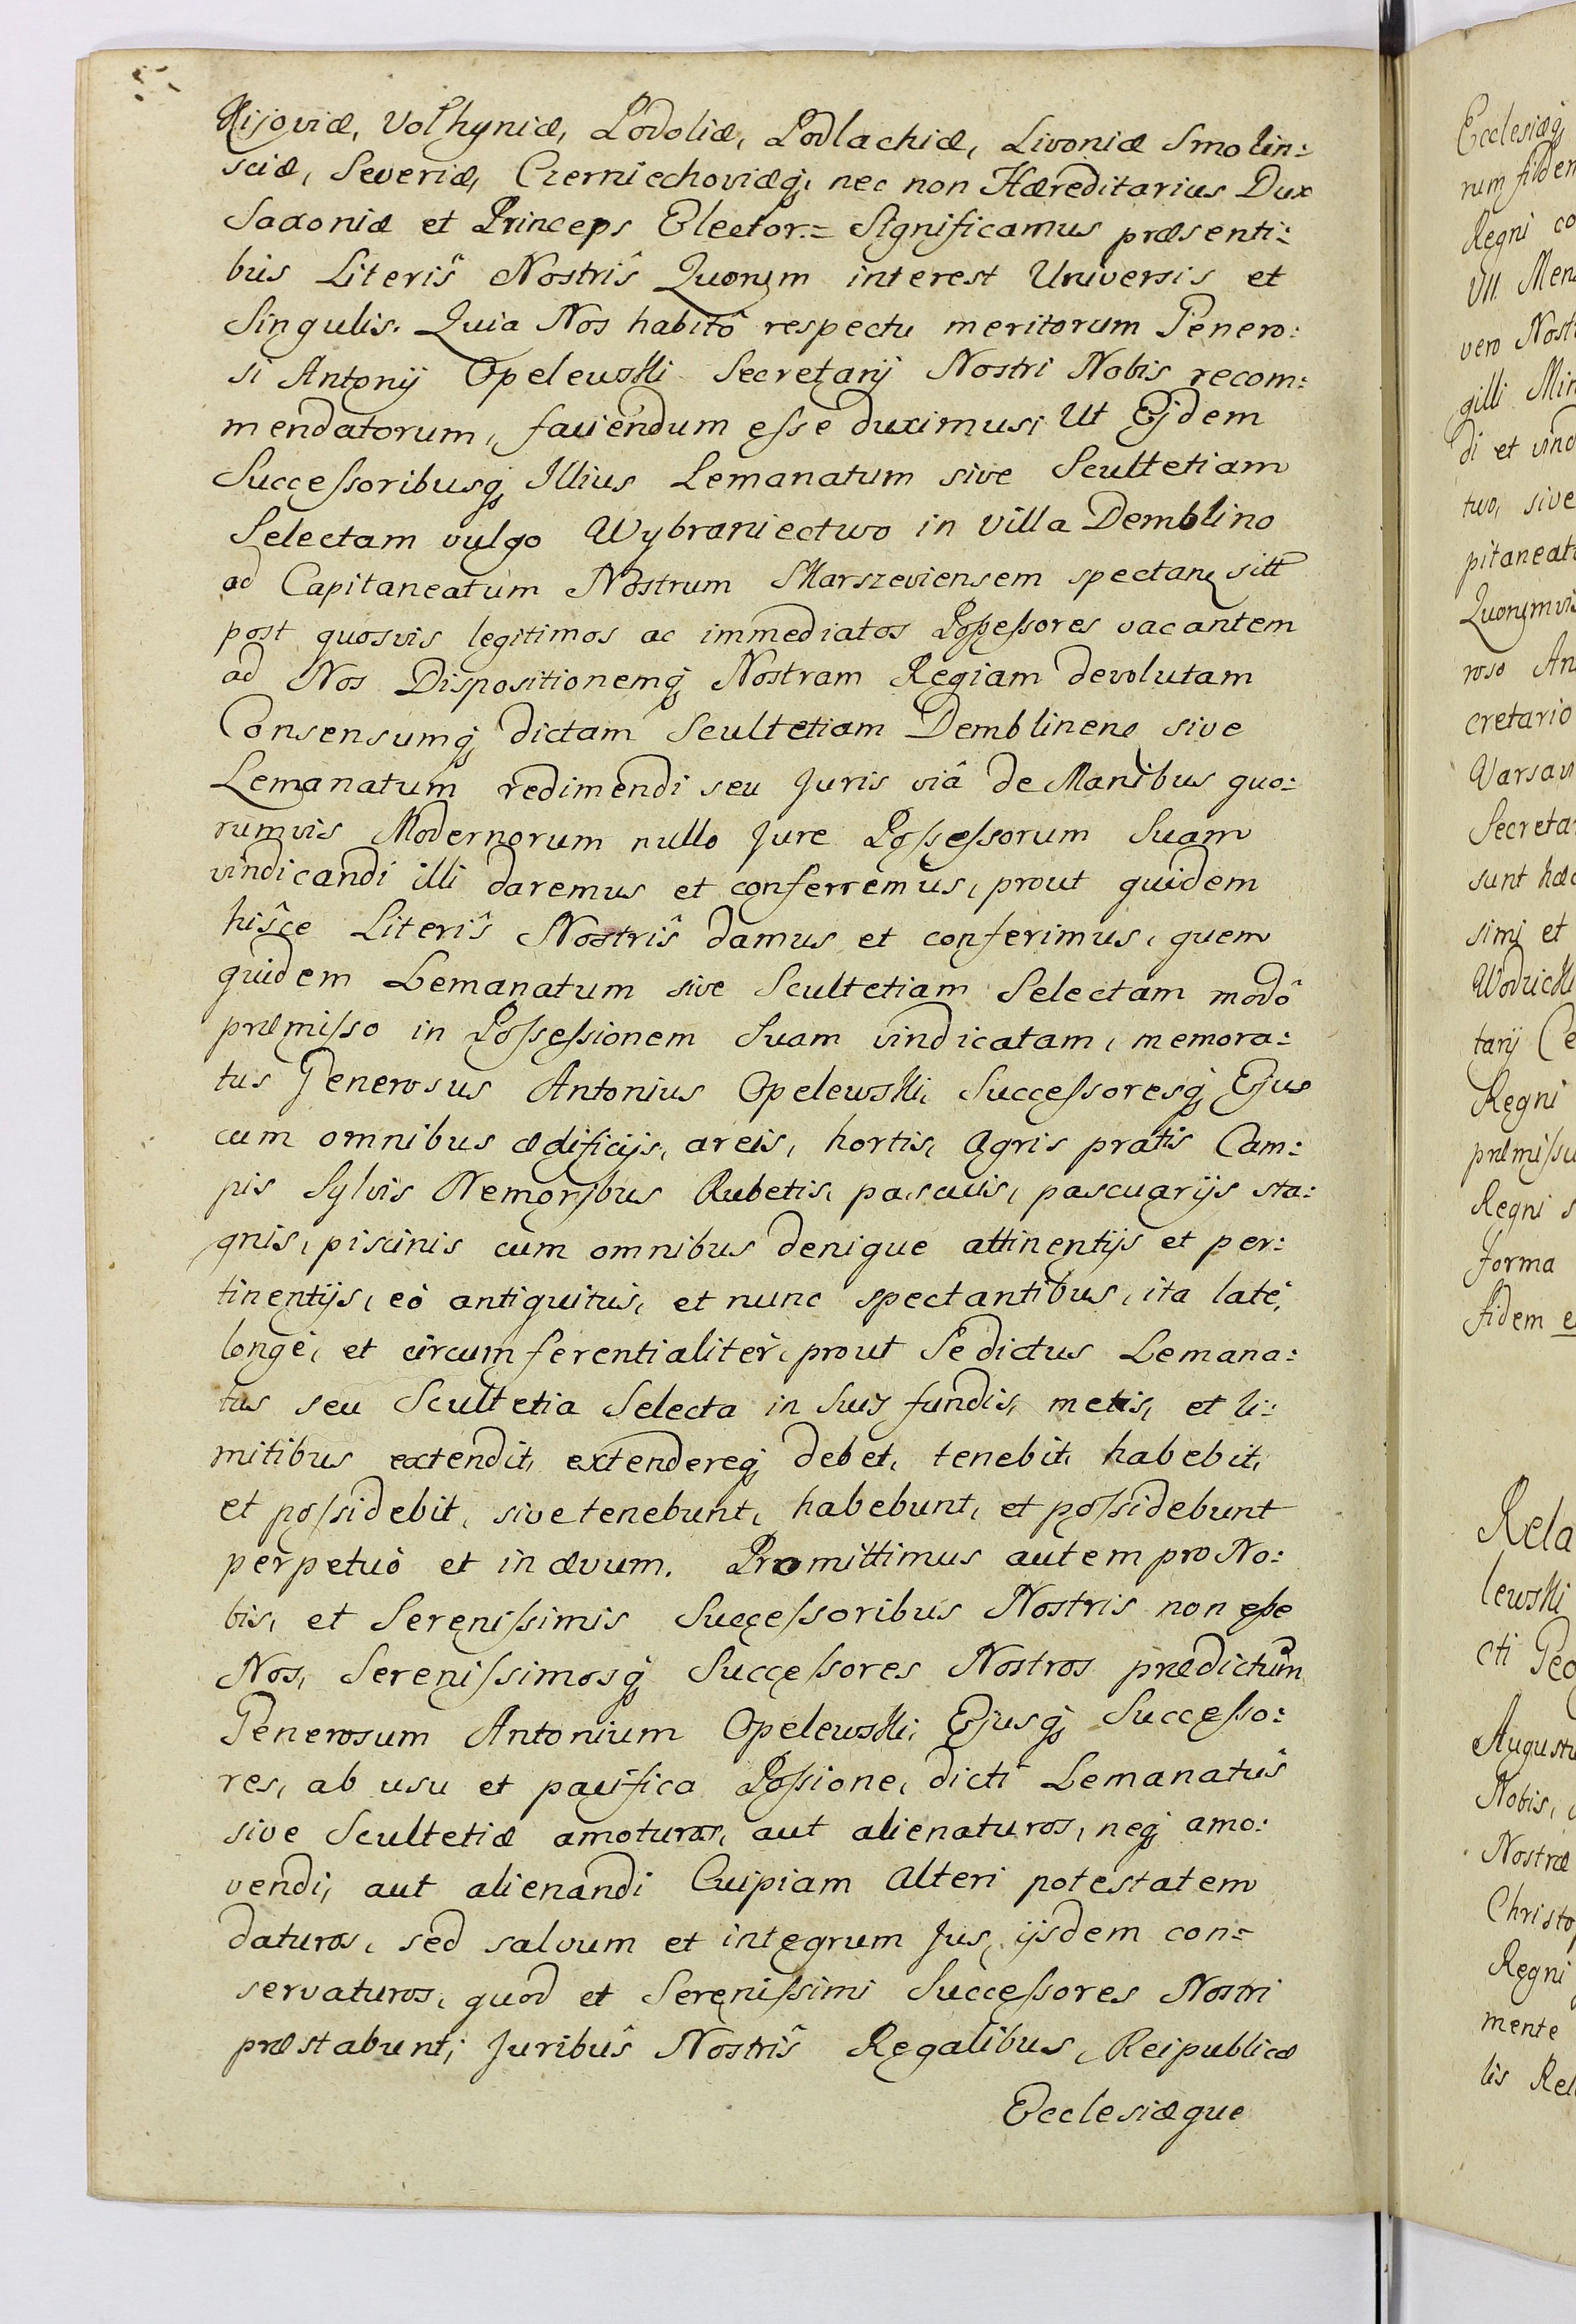 Kijoviæ, Volhyniæ, Podoliæ, Podlachiæ, Livoniæ Smolin:
sciæ, Severiæ, Czerniechoviæq, nec non Hæreditarius Dux
Saxoniæ et Princeps Elector.= Significamus præsenti:
bus Literis Nostris Quorum interest Universis et
Singulis. Quia Nos habitô respectu meritorum Genero:
si Antonij Opelewski Secretarij Nostri Nobis recom:
mendatorum, faciendum esse duximus; Ut Ejdem
Successoribusq Illius Lemanatum sive Scultetiam
Selectam vulgo Wybraniectwo in Villa Demblino
ad Capitaneatum Nostrum
post quosvis legitimos ac immediatos Possessores vacantem
ad Nos Dispositionemq Nostram Regiam devolutam
Consensumq dictam Scultetiam Demblinens sive
Lemanatum redimendi seu Juris viâ de Manibus quo:
rumvis Modernorum nullo Jure Possessorum Suam
vindicandi illi daremus et conferremus, prout quidem
hisce Literis Nostris damus et conferimus, quem
quidem Lemanatum sive Scultetiam Selectam modô
præmisso in Possessionem Suam vindicatam, memora:
tus Generosus Antonius Opelewski, Successoresq Ejus
cum omnibus ædificijs, areis, hortis, Agris pratis Cam:
pis Sylvis Nemoribus Rubetis, pascuis, pascuarijs sta:
gnis, piscinis cum omnibus denique attinentijs et per:
tinentijs, eò antiquitus, et nunc spectantibus, ita latè,
longè, et circumferentialiter, prout Se dictus Lemana:
tus seu Scultetia Selecta in Suis fundis, metis, et li:
mitibus extendit, extendereq debet, tenebit, habebit,
et possidebit, sive tenebunt, habebunt, et possidebunt
perpetuò et in ævum. Promittimus autem pro No:
bis, et Serenissimis Successoribus Nostris non esse
Nos, Serenissimosq Successores Nostros prædictum
Generosum Antonium Opelewski, Ejusq Successo:
res, ab usu et pacifica Possione, dicti Lemanatus
sive Scultetiæ amoturos, aut alienaturos, neq amo:
vendi, aut alienandi Cuipiam Alteri potestatem
daturos, sed salvum et integrum Jus, ijsdem con=
servaturos, quod et Serenissimi Successores Nostri
præstabunt; Juribus Nostris Regalibus, Reipublicæ
Ecclesiæque
Ecclesiæq
Regni co
vero Nost
di et vind
two, sive
pitaneat
Quorumvis
roso An
cretario
Varsav
Secreta
sunt hæc
simi et
tarij Ce
Regni
præmissu
Regni s
forma
fidem e
Rela
lewski
cti Geo
Augustu
Nobis,
Nostræ
Christo
Regni
mente
lis Rel